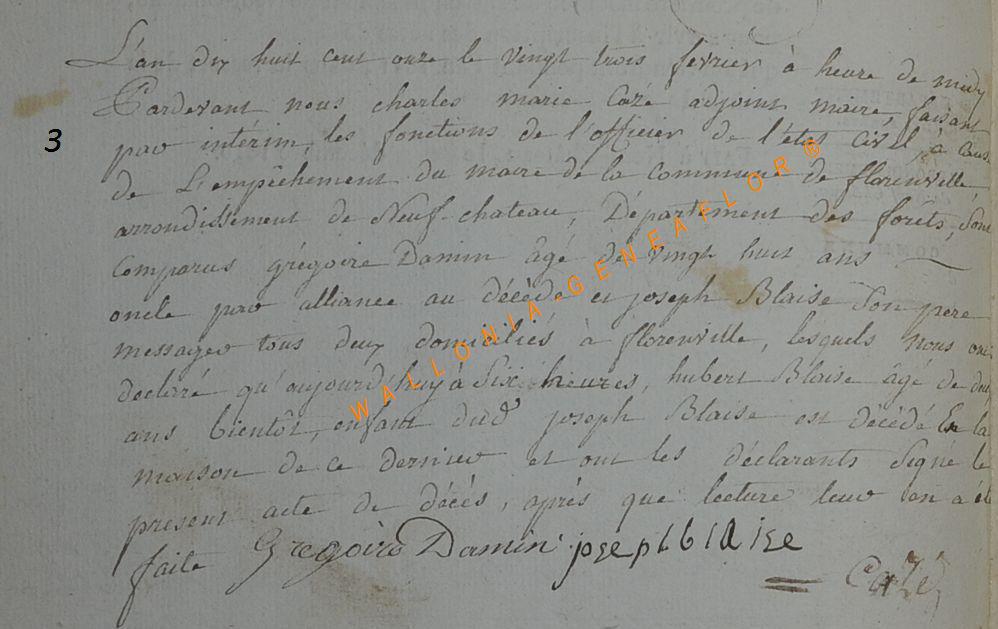 L'an dix huit cent onze le vingt trois fevrier à heure de midy
Pardevant nous charles marie Cazé adjoint maire, faisant
par intérim, les fonctions de l'officier de l'état civil, à caus
3
de L'empêchement du maire de la commune de florenville,
arrondissement de Neuf-chateau, Département des forêts, sont
comparus grégoire Damin âgé de vingt huit ans
oncle par alliance au décédé et joseph Blaise son pere
messager tous deux domiciliés à florenville, lesquels nous ont
declaré qu'aujourd'huy à Six heures, hubert Blaise âgé de deux
ans bientôt, enfant dud joseph Blaise est décédé En la
maison de ce dernier et ont les déclarants Signé le
present acte de décés, après que lecture leur en a été
faite Gregoire Damin josephblaise
Cazé
WALLONIA GENEAFLOR ®